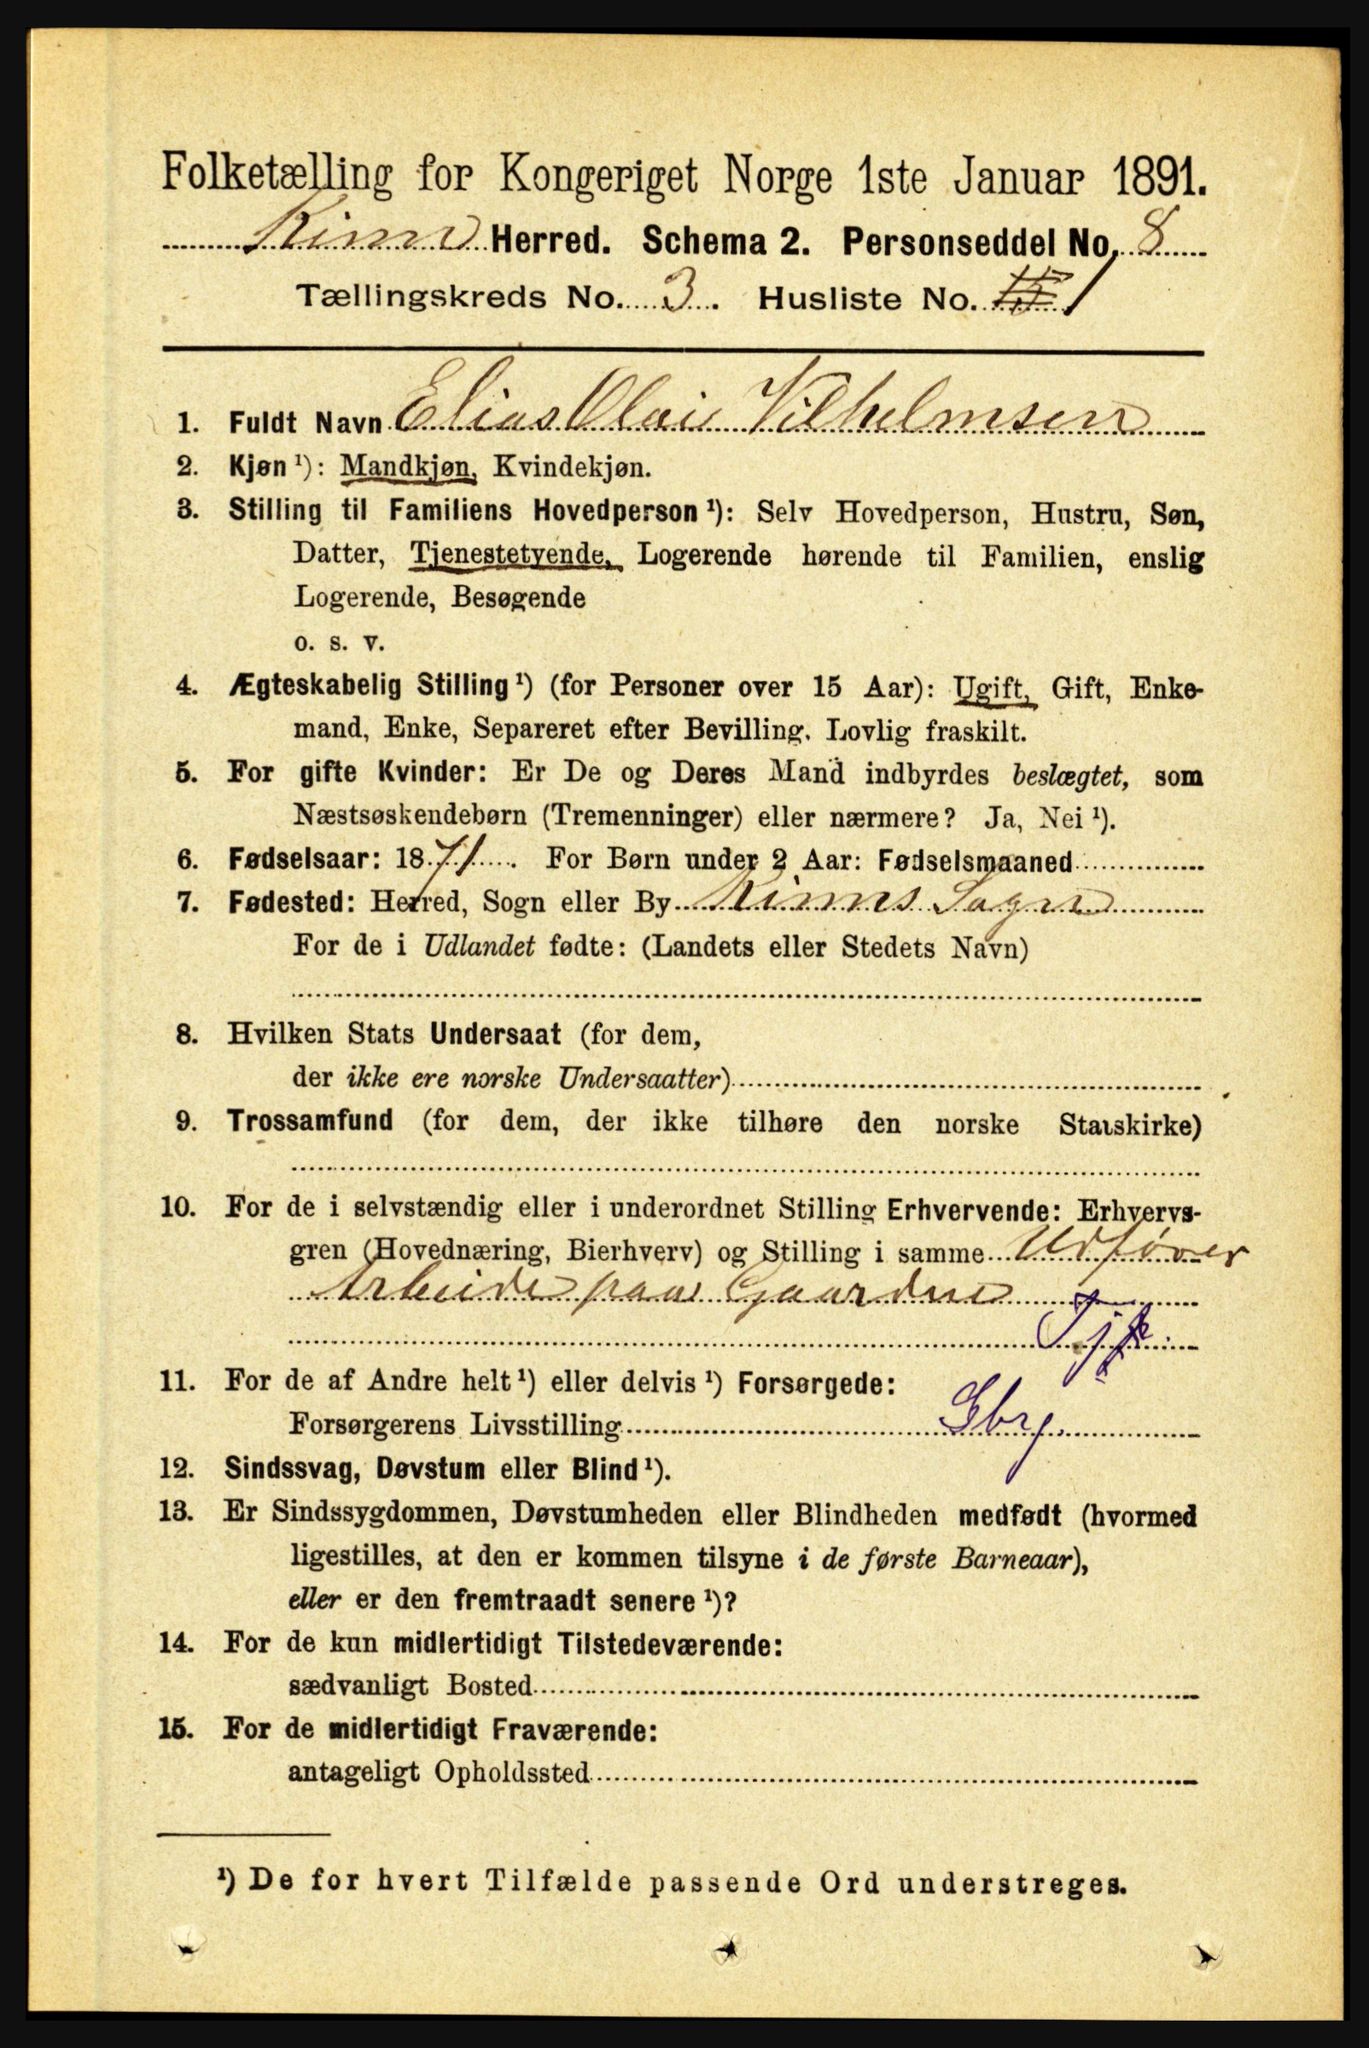 Folketælling for Kongeriget Norge 1ste Januar 1891.
Kinn Herred. Schema 2. Personseddel No. 8
Tællingskreds No. 3. Husliste No. 1
1. Fuldt Navn Elias Olai Vilhelmsen
2. Kjøn ¹): Mandkjøn, Kvindekjøn.
3. Stilling til Familiens Hovedperson ¹): Selv Hovedperson, Hustru, Søn,
Datter, Tjenestetyende, Logerende hørende til Familien, enslig
Logerende, Besøgende
o. s. v.
4. Ægteskabelig Stilling ¹) (for Personer over 15 Aar): Ugift, Gift, Enke-
mand, Enke, Separeret efter Bevilling. Lovlig fraskilt.
5. For gifte Kvinder: Er De og Deres Mand indbyrdes beslægtet, som
Næstsøskendebørn (Tremenninger) eller nærmere? Ja, Nei ¹).
6. Fødselsaar: 1871. For Børn under 2 Aar: Fødselsmaaned
7. Fødested: Herred, Sogn eller By Kinns Sogn
For de i Udlandet fødte: (Landets eller Stedets Navn)
8. Hvilken Stats Undersaat (for dem,
der ikke ere norske Undersaatter)
9. Trossamfund (for dem, der ikke tilhøre den norske Statskirke)
10. For de i selvstændig eller i underordnet Stilling Erhvervende: Erhvervs-
gren (Hovednæring, Bierhverv) og Stilling i samme Udfører
Arbeide paa Gaarden
Tj.
11. For de af Andre helt ¹) eller delvis ¹) Forsørgede:
Forsørgerens Livsstilling Gbr.
12. Sindssvag, Døvstum eller Blind ¹).
13. Er Sindssygdommen, Døvstumheden eller Blindheden medfødt (hvormed
ligestilles, at den er kommen tilsyne i de første Barneaar),
eller er den fremtraadt senere ¹)?
14. For de kun midlertidigt Tilstedeværende:
sædvanligt Bosted
15. For de midlertidigt Fraværende:
antageligt Opholdssted
¹) De for hvert Tilfælde passende Ord understreges.